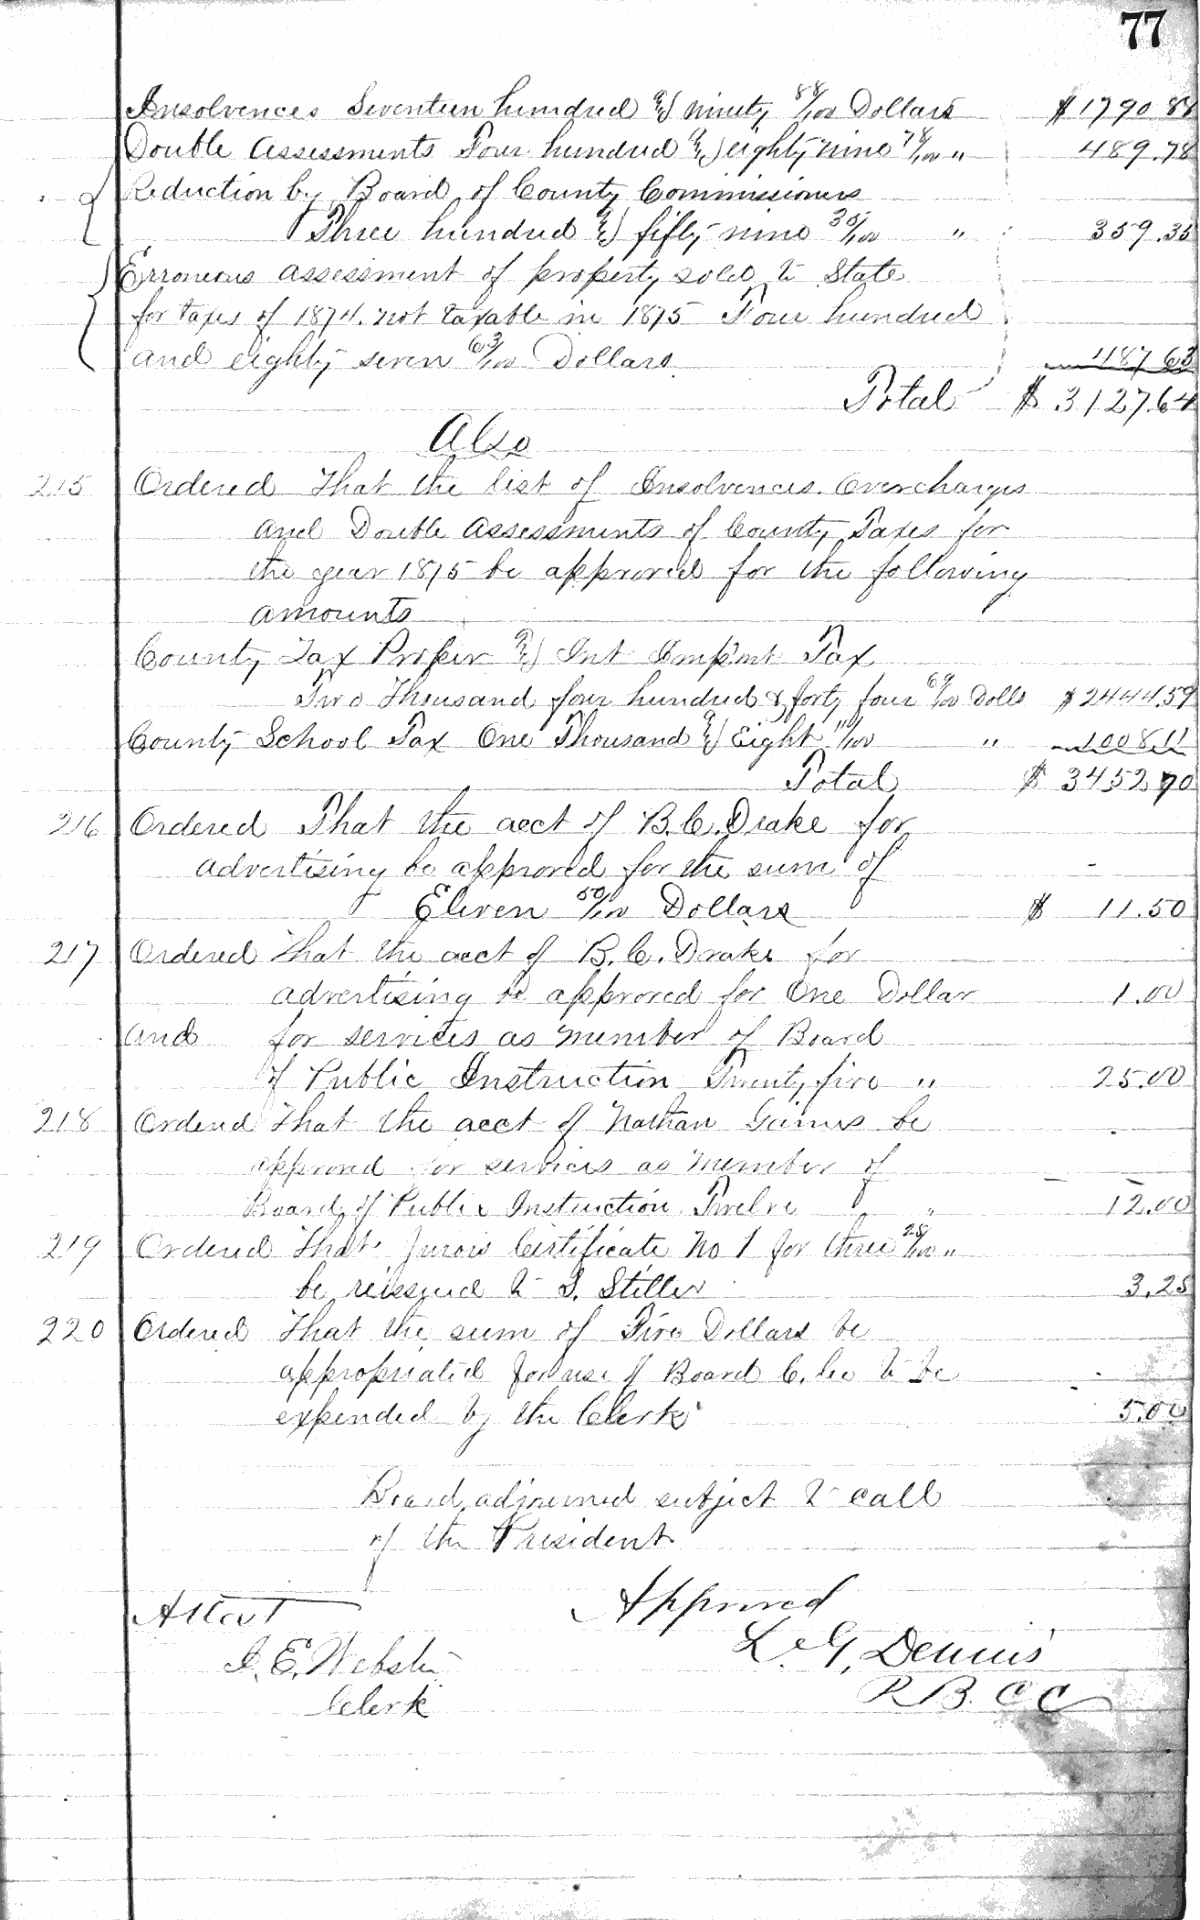 77
Insolvences Seventeen hundred & ninety 88/100 Dollars $1790.88
Double Assessments Four hundred & eighty nine 78/100 " 489.78
Reduction by Board of County Commissioners
Three hundred & fifty nine 35/100 " 359.35
Erroneous assessment of property sold to State
for taxes of 1874. not taxable in 1875 Four hundred
and eighty seven 63/100 Dollars 487 63
Total $ 3127.64
Also
215 Ordered That the list of Insolvences. Overcharges
and Double Assessments of County Taxes for
the year 1875 be approved for the following
amounts
County Tax Proper & Int Imp'mt Tax
Two Thousand four hundred & forty four 59/100 Dolls $2444.59
County School Tax One Thousand & Eight 11/100 " 1008.11
Total $ 3452 70
216 Ordered That the acct of B.C. Drake for
advertising be approved for the sum of
Eleven 50/100 Dollars $ 11.50
217 Ordered that the acct of B.C. Drake for
advertising be approved for One Dollar 1.00
and for services as member of Board
of Public Instruction Twenty five " 25.00
218 Ordered that the acct of Nathan Gaines be
approved for services as member of
Board of Public Instruction Twelve " 12.00
219 Ordered that Jurors Certificate No 1 for three 25/100 "
be reissued to S. Stiller 3.25
220 Ordered that the sum of Five Dollars be
appropriated for use of Board C. to be
expended by the Clerk 5.00
Board adjourned subject to call
of the President
Attest Approved
J. E. Webster L. G. Dennis
Clerk P.B.C C